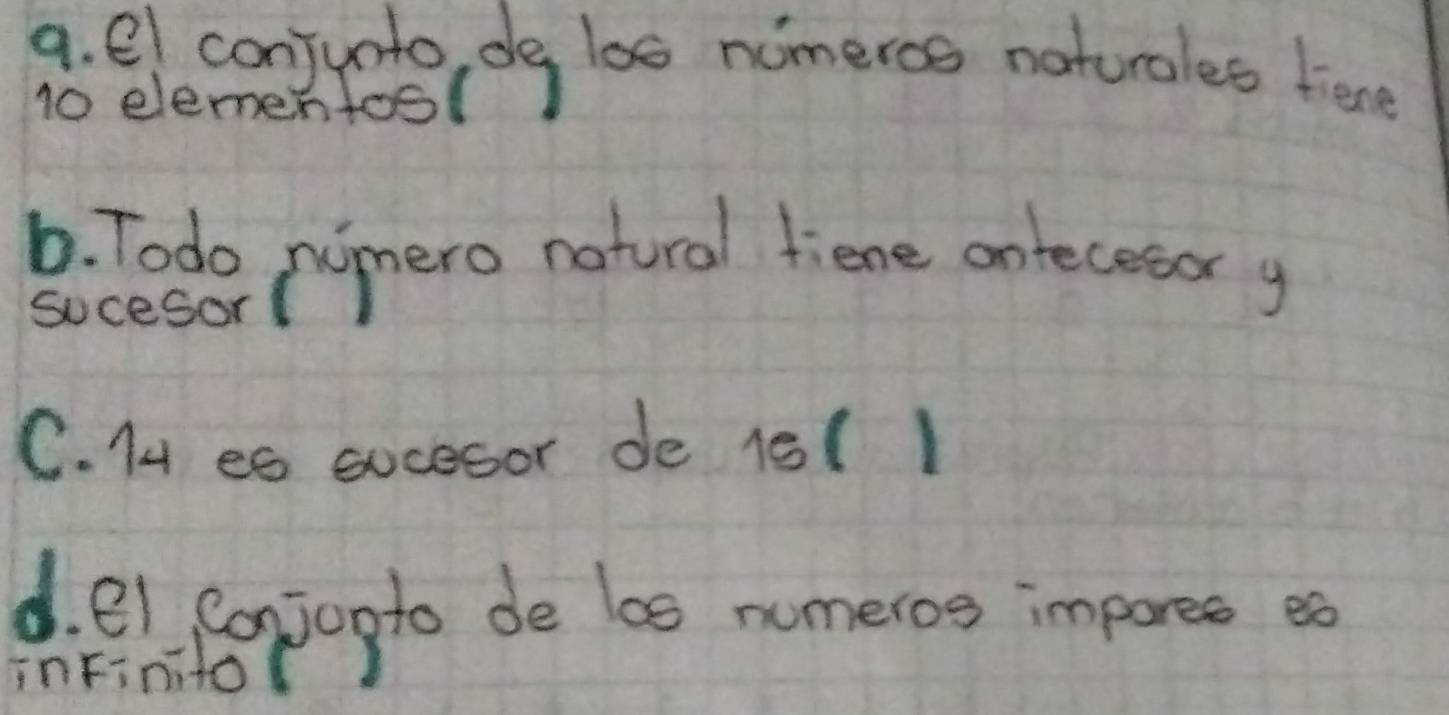 a. El conjunto de los números naturales tiene
10 elementos ( )
b. Todo número natural tiene antecesor y
sucesor ( )
C. 14 es sucesor de 15 ( )
d. el conjunto de los numeros impares es
infinito ( )